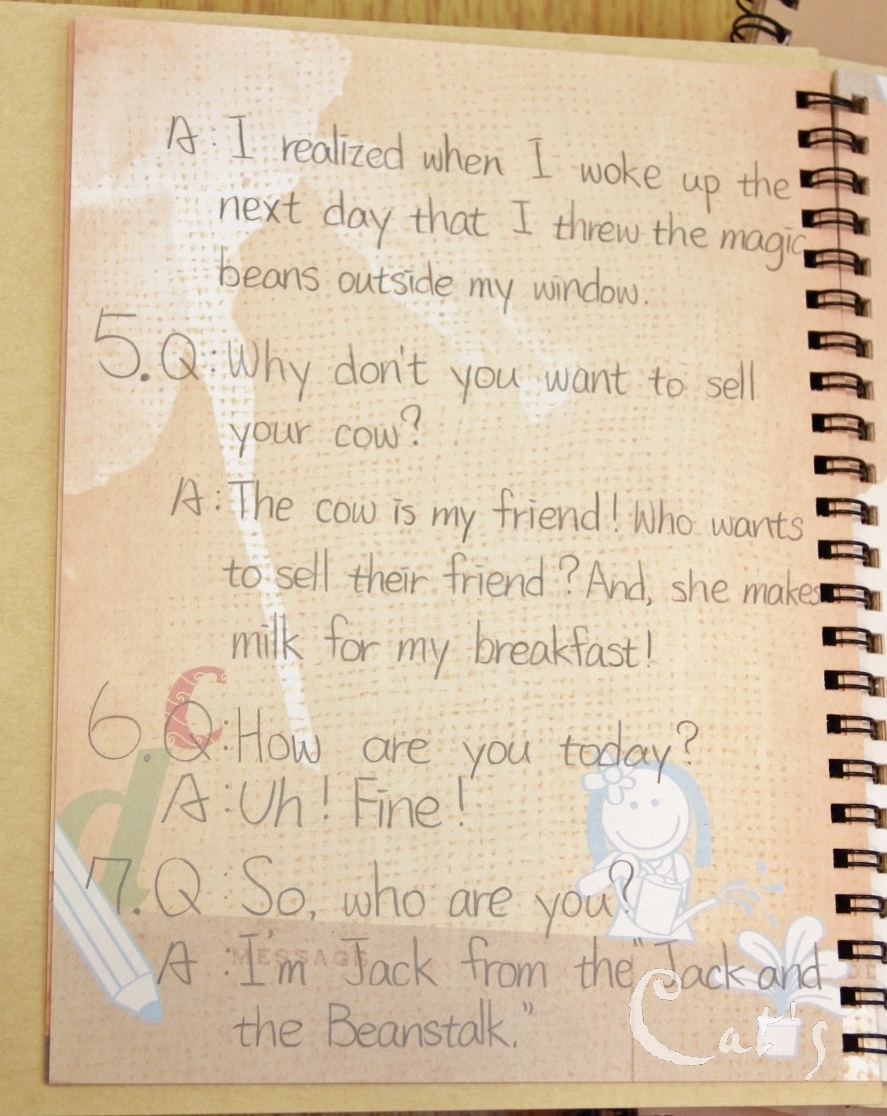 A: I realized when I woke up the
next day that I threw the magic
beans outside my window.
5. Q: Why don't you want to sell
your cow?
A: The cow is my friend! Who wants
to sell their friend? And, she makes
milk for my breakfast!
6. Q: How are you today?
A: Uh! Fine!
7. Q: So, who are you?
MESSAGE
A: I'm Jack from the "Jack and
the Beanstalk."
Cat's